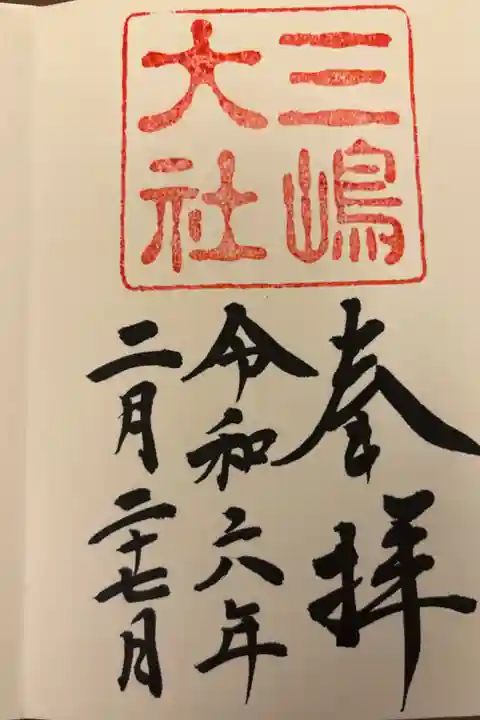 三嶋
大社
奉拝
令和六年
二月二十七日